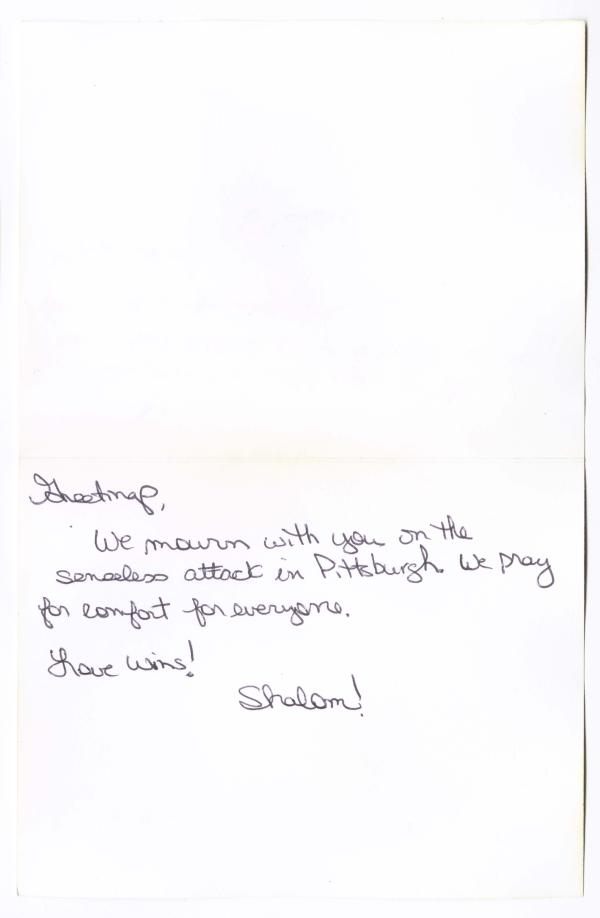 Greetings,
We mourn with you on the
senseless attack in Pittsburgh. We pray
for comfort for everyone.
Love wins!
Shalom!